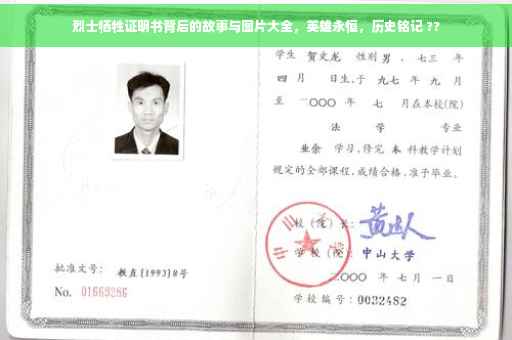 烈士牺牲证明书背后的故事与图片大全，英雄永恒，历史铭记 ??
学生 贺文龙 性别 男 ，七三 年
四 月 日生，于 九七 年 九 月
至 二〇〇〇 年 七 月在本校(院)
法 学 专业
业余 学习，修完 本 科教学计划
规定的全部课程，成绩合格，准予毕业。
校（院）长：
学 校（院）：中山大学
二〇〇〇 年 七 月 一 日
学校编号：0032482
批准文号： 教直[1993]8号
No. 01669286
中山大学